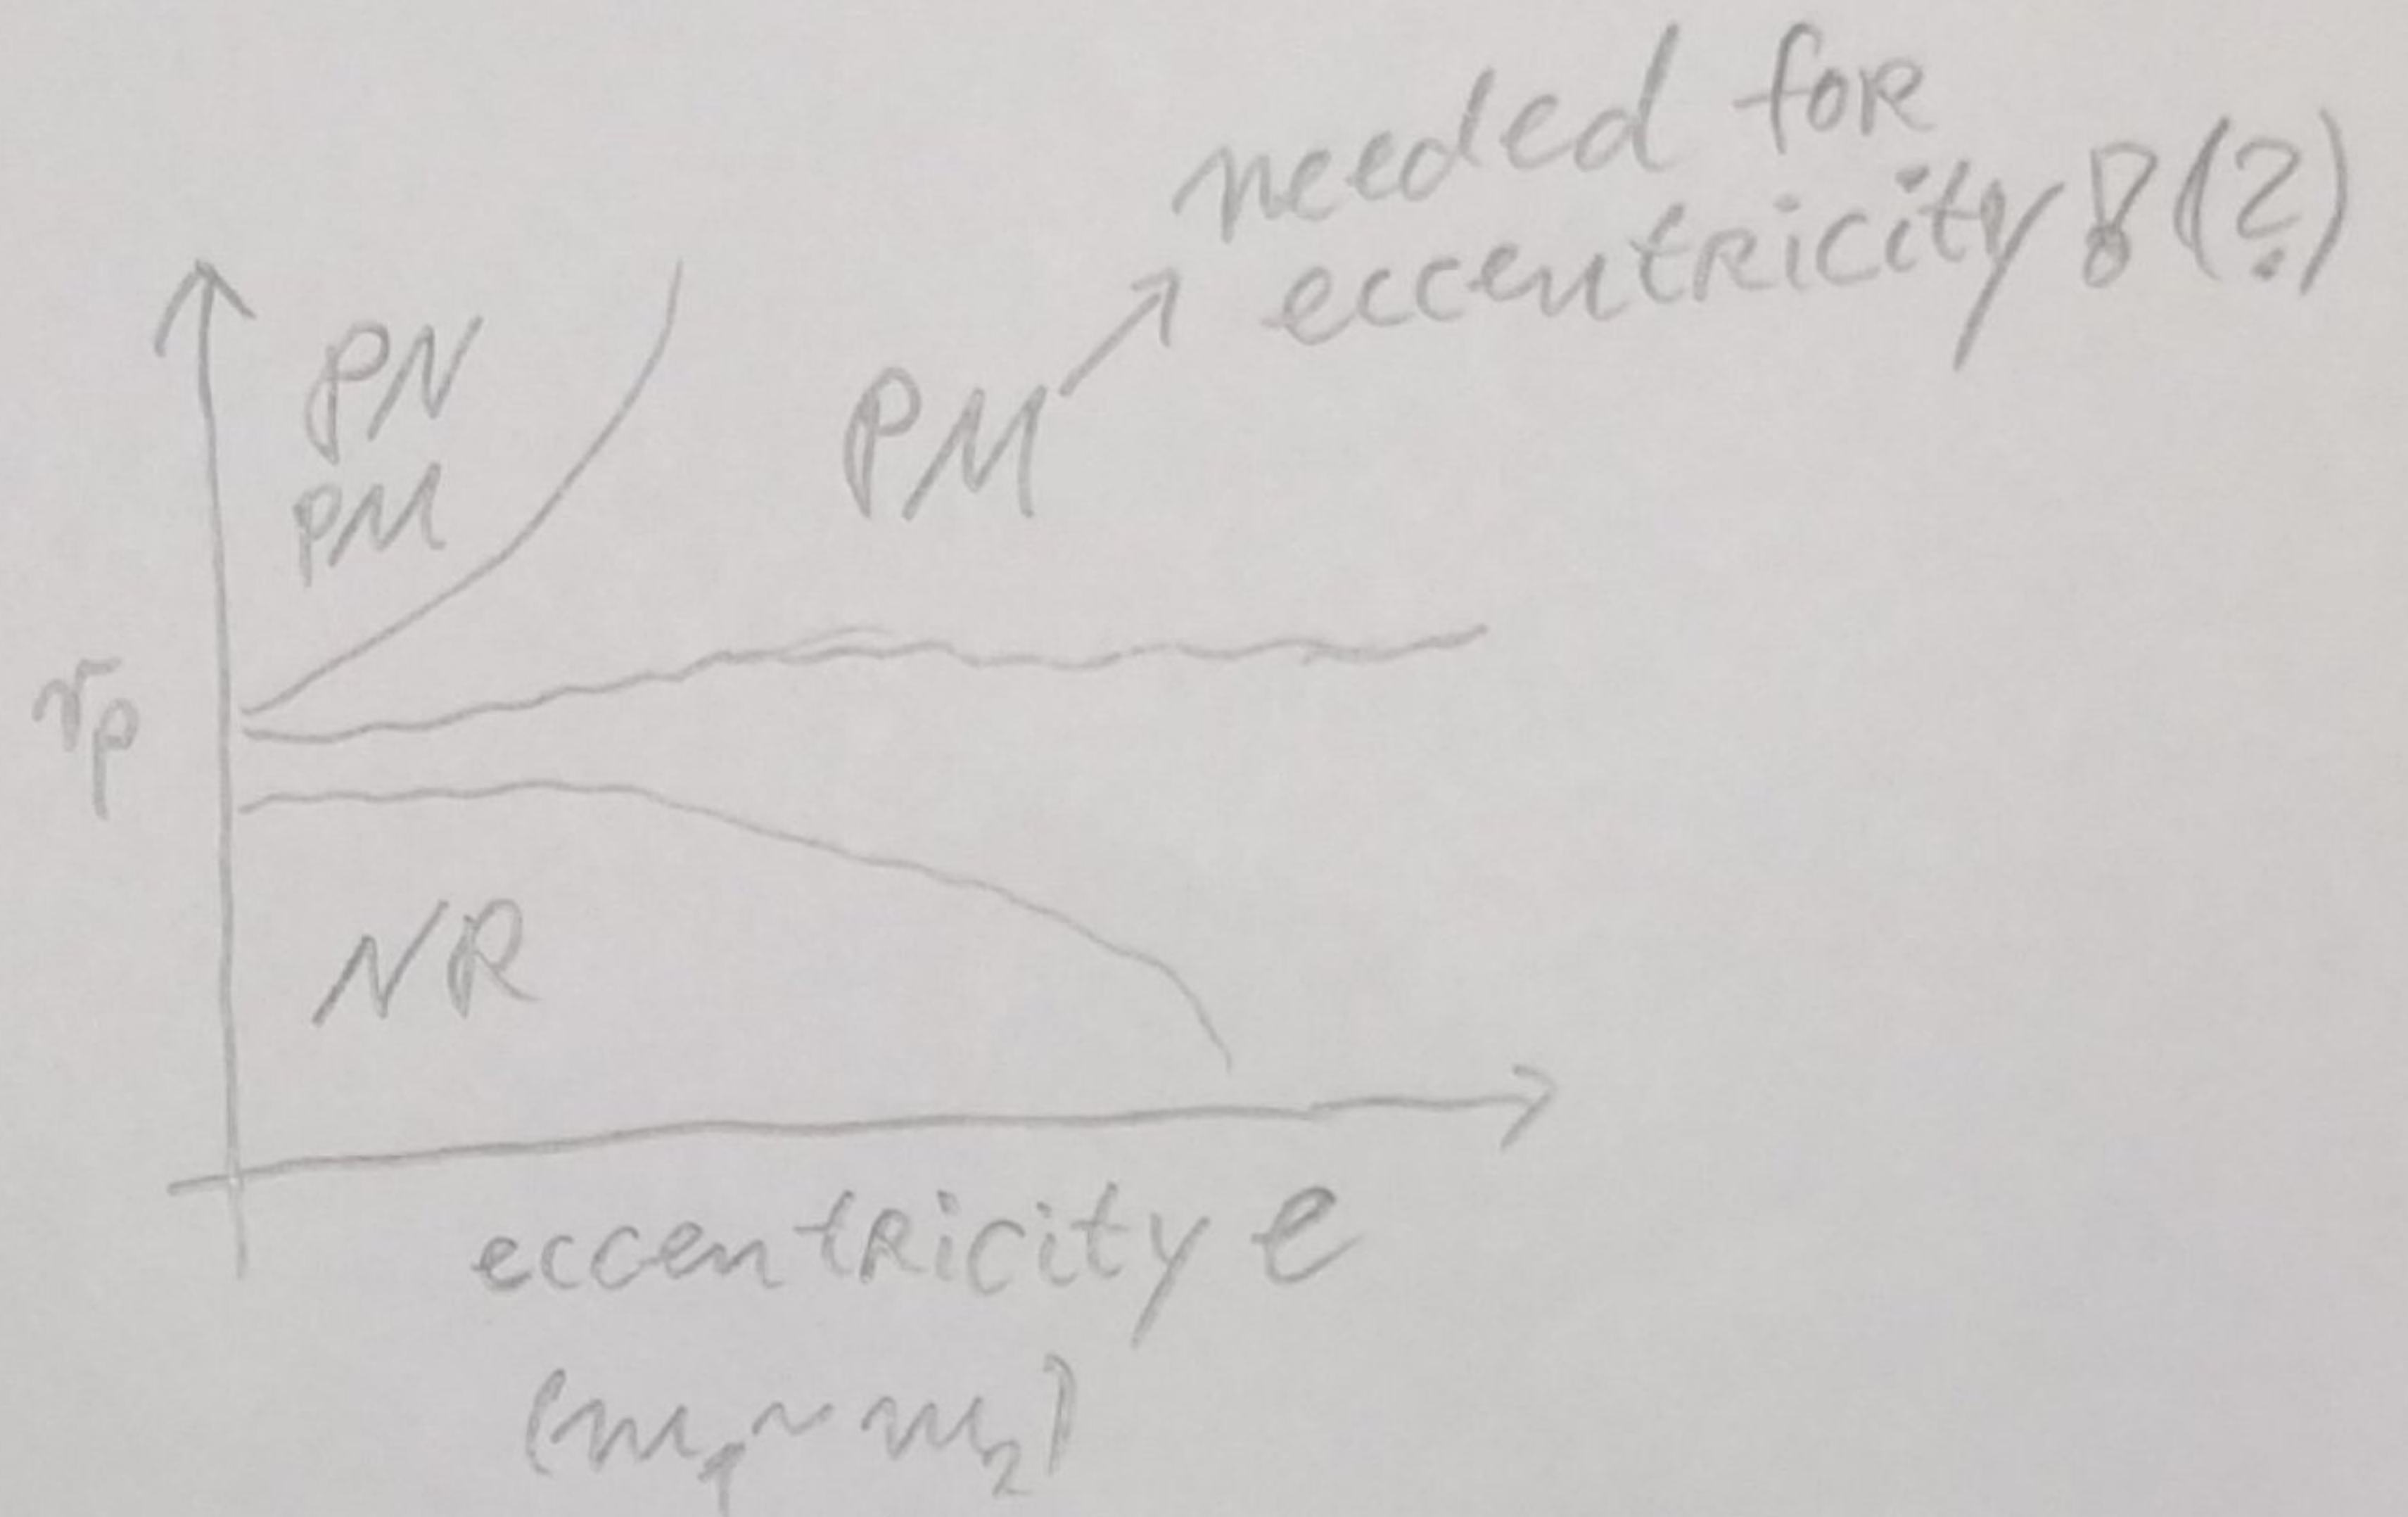 needed for
eccentricity!(?)
PN
PM
PM
rp
NR
eccentricity e
(m1 ~ m2)